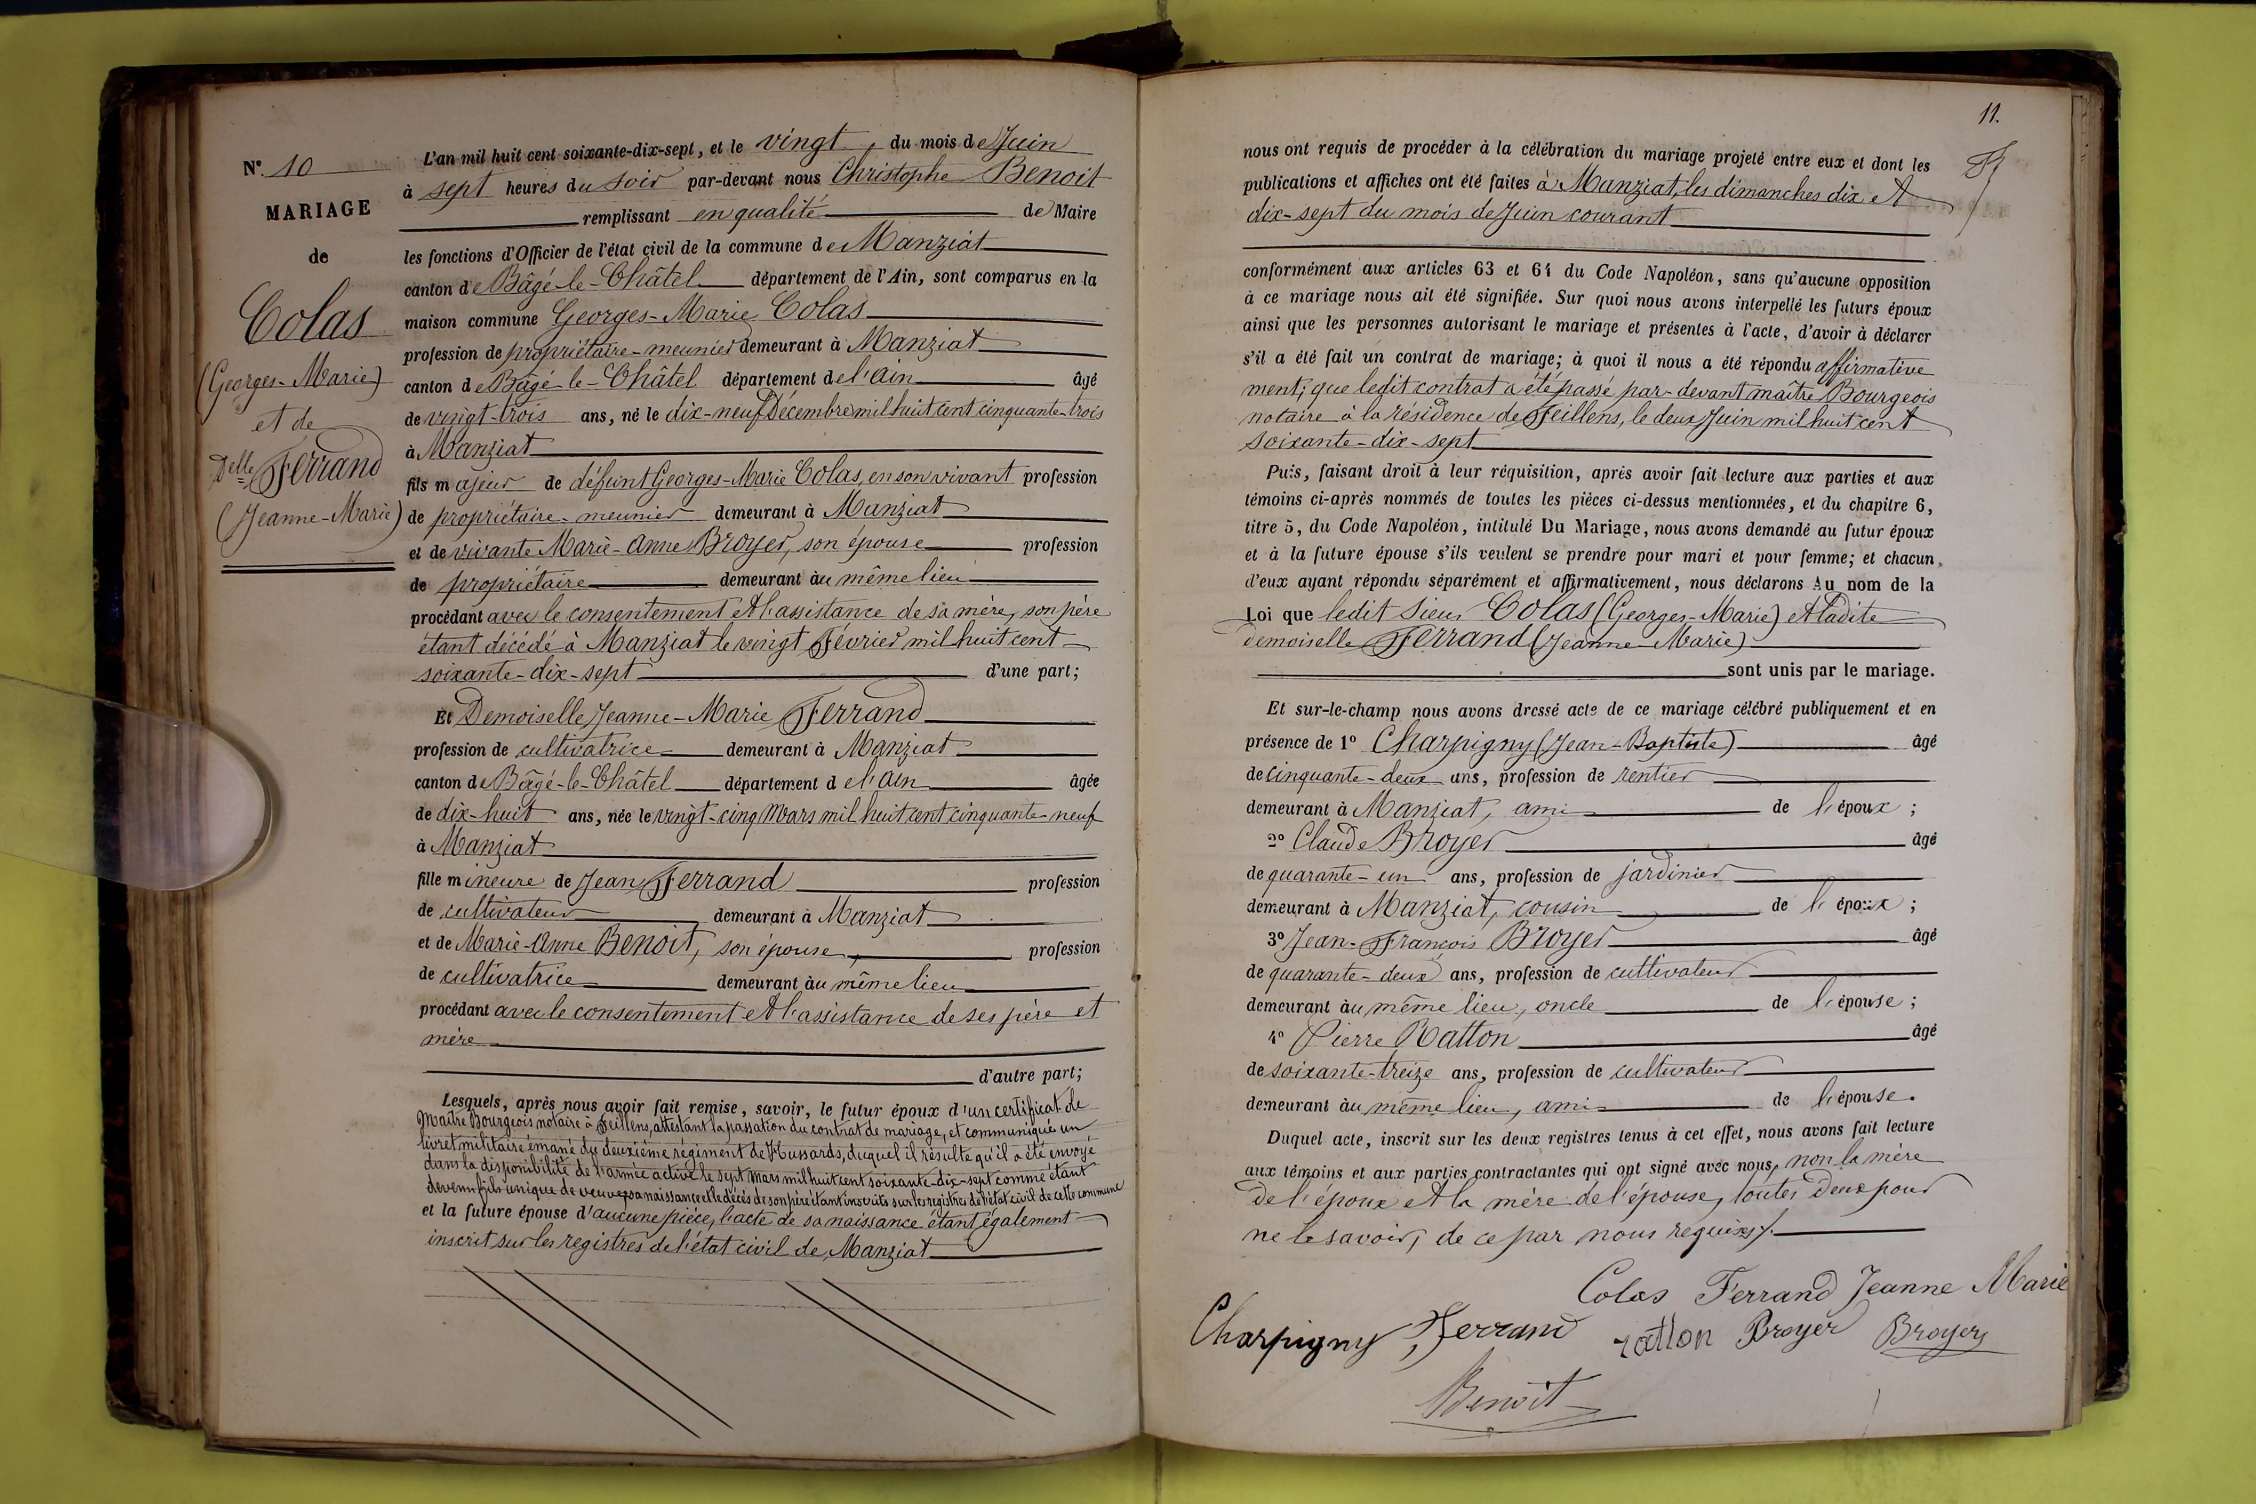 N.° 10
MARIAGE
de
Colas
(Georges-Marie)
et de
Delle Ferrand
(Jeanne-Marie)
L'an mil huit cent soixante-dix-sept, et le vingt, du mois de Juin
à sept heures du soir par-devant nous Christophe Benoit
remplissant en qualité de Maire
les fonctions d'Officier de l'état civil de la commune de Manziat
canton de Bâgé-le-Châtel département de l'Ain, sont comparus en la
maison commune Georges-Marie Colas
profession de propriétaire-meunier demeurant à Manziat
canton de Bâgé-le-Châtel département de l'ain âgé
de vingt-trois ans, né le dix-neuf Décembre mil huit cent cinquante-trois
à Manziat
fils majeur de défunt Georges-Marie Colas, en son vivant profession
de propriétaire-meunier demeurant à Manziat
et de vivante Marie-Anne Broyer, son épouse profession
de propriétaire demeurant àu même lieu
procédant avec le consentement et l'assistance de sa mère, son père
étant décédé à Manziat le vingt Février mil huit cent
soixante-dix-sept d'une part;
Et Demoiselle Jeanne-Marie Ferrand
profession de cultivatrice demeurant à Manziat
canton de Bâgé-le-Châtel département de l'ain âgée
de dix-huit ans, née le vingt-cinq Mars mil huit cent cinquante-neuf
à Manziat
fille mineure de Jean Ferrand profession
de cultivateur demeurant à Manziat
et de Marie-Anne Benoit, son épouse, profession
de cultivatrice demeurant àu même lieu
procédant avec le consentement et l'assistance de ses père et
mère
d'autre part;
Lesquels, après nous avoir fait remise, savoir, le futur époux d'un certificat de
Maître Bourgeois notaire à Feillens, attestant la passation du contrat de mariage, et communiqué un
livret militaire émané du deuxième régiment de Hussards, duquel il résulte qu'il a été envoyé
dans la disponibilité de l'armée active le sept Mars mil huit cent soixante-dix-sept comme étant
devenu fils unique de veuve, sa naissance et le décès de son père étant inscrits sur les registres de l'état civil de cette commune
et la future épouse d'aucune pièce, l'acte de sa naissance étant également
inscrit sur les registres de l'état civil de Manziat
11.
nous ont requis de procéder à la célébration du mariage projeté entre eux et dont les
publications et affiches ont été faites à Manziat, les dimanches dix et
dix-sept du mois de Juin courant
conformément aux articles 63 et 64 du Code Napoléon, sans qu'aucune opposition
à ce mariage nous ait été signifiée. Sur quoi nous avons interpellé les futurs époux
ainsi que les personnes autorisant le mariage et présentes à l'acte, d'avoir à déclarer
s'il a été fait un contrat de mariage; à quoi il nous a été répondu affirmative
ment; que ledit contrat a été passé par-devant maître Bourgeois
notaire à la résidence de Feillens, le deux Juin mil huit cent
soixante-dix-sept
Puis, faisant droit à leur réquisition, après avoir fait lecture aux parties et aux
témoins ci-après nommés de toutes les pièces ci-dessus mentionnées, et du chapitre 6,
titre 5, du Code Napoléon, intitulé Du Mariage, nous avons demandé au futur époux
et à la future épouse s'ils veulent se prendre pour mari et pour femme; et chacun
d'eux ayant répondu séparément et affirmativement, nous déclarons Au nom de la
Loi que ledit Sieur Colas (Georges-Marie) et ladite
demoiselle Ferrand (Jeanne-Marie)
sont unis par le mariage.
Et sur-le-champ nous avons dressé acte de ce mariage célébré publiquement et en
présence de 1° Charpigny (Jean-Baptiste) âgé
de cinquante-deux ans, profession de rentier
demeurant à Manziat, ami de l'époux;
2° Claude Broyer âgé
de quarante-un ans, profession de jardinier
demeurant à Manziat, cousin de l'époux;
3° Jean-François Broyer âgé
de quarante-deux ans, profession de cultivateur
demeurant àu même lieu, oncle de l'épouse;
4° Pierre Ratton âgé
de soixante-treize ans, profession de cultivateur
demeurant àu même lieu, ami de l'épouse.
Duquel acte, inscrit sur les deux registres tenus à cet effet, nous avons fait lecture
aux témoins et aux parties contractantes qui ont signé avec nous, non la mère
de l'époux et la mère de l'épouse, toutes deux pour
ne le savoir, de ce par nous requises.
Colas Ferrand Jeanne Marie
Charpigny Ferrand ratton Broyer Broyer
Benoit